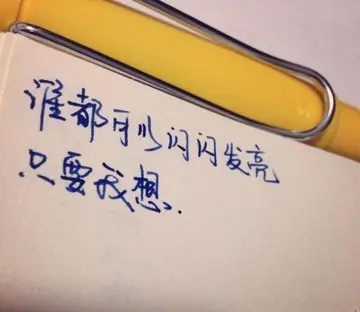 谁都可以闪闪发亮
只要我想..